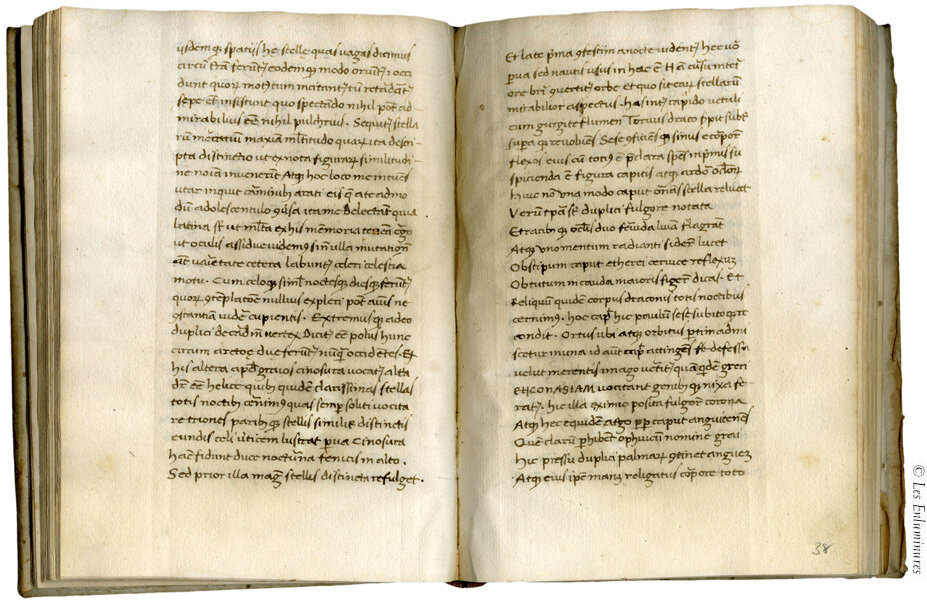 iisdemq; spatiis he stelle quas vagas dicimus
circū trā ferunt᷑ eodemq; modo oriunt᷑ & occi
dunt quorꝝ motꝰ tum incitant᷑ tū retardāt᷑
sepe etiā insistunt quo spectāudo nihil pōt ēē ad
mirabilius ēē nihil pulchrius. Sequit᷑ stella
rum maxima mltitudo quarꝝ ita descri
pta distinctio ut ex nota figurarꝝ similitudi
ne noīa invenerīt Atq; hoc loco me intuēs
utar inquit carminib; arati eis q̄ a te admo
dū adolescentulo ꝯūsa ita me delectant quia
latina sūt ut mlta ex his memoria teneā Ergo
ut oculis assidue videmus sin ulla mutatione
aūt varietate cetera labunt᷑ celeri celestia
motu. Cum celoq; siml noctesq; diesq; ferunt᷑
quorꝝ ꝯtemplatōe nullius expleri pōt aīus nāe
ꝯstantiā videre cupientis. Extremusq; adeo
duplici de cardīne vertex Dicit᷑ ēē polus hunc
circum arctoe due ferunt᷑ nūq̄ occidētes. Et
his altera apd graios cinosura vocat᷑ altera
dr̄ ēē helice quiꝰ quidē clarissimas stellas
totis noctibꝰ cernimꝰ quas nr̄i semp soliti vocita
re triones paribusq; stellis similir distinctis
eundis celi verticem lustrat parva Cinosura
hac fidunt duce nocturna fenices in alto.
Sed prior illa magis stellis distincta refulget.
Et late prīma ꝯfestim a nocte vident᷑ hec vō
pva sed nautis usus in hac ē Nā cursu interi
ore brevi ꝯvertit᷑ orbe Et quo sit earꝝ stellarū
mirabilior aspectus. has int᷑ rapido veluti
cum gurgite flumen Torvus draco serpit subt᷑
supraq; revolvēs Sese ꝯficiēsq; sinus e corpore
flexos eius cū totiꝰ ē p̄clara spēs inprimis su
spicienda ē figura capitis atq; ardor oclorꝝ
huic nō una modo caput ornās stella relucet
Verū tp̄a sūt duplici fulgore notata
E trucibq; oclis duo fervida lumīa flagrant
Atq; uno mentum radianti sidere lucet
Obstipum caput et tereti cervice reflexuꝫ
Obtutum in cauda maioris figere dicas. Et
Reliquū quidē corpus draconis totis noctibus
cernimꝰ. hoc cap̄ hic paulū sese subitoq; re
condit. Ortus ubi atq; obitus partim admi
scetur in una id aūt cap̄ attingēs defessa
velut merentis imago vertit᷑ quā qdē greci
ENGONASIAM vocitant genibꝰ q; nixa fe
rat᷑. hic illa eximio posita ē fulgore corona
Atq; hec equidē a tergo pp caput anguitenēs
Quē clarū phibēt ophiucū nomine grai
Hic pressu duplici palmarꝝ ꝯtinet anguem
Atq; eius ip̄e manet religatus corpore toto
38
© Les Enluminures